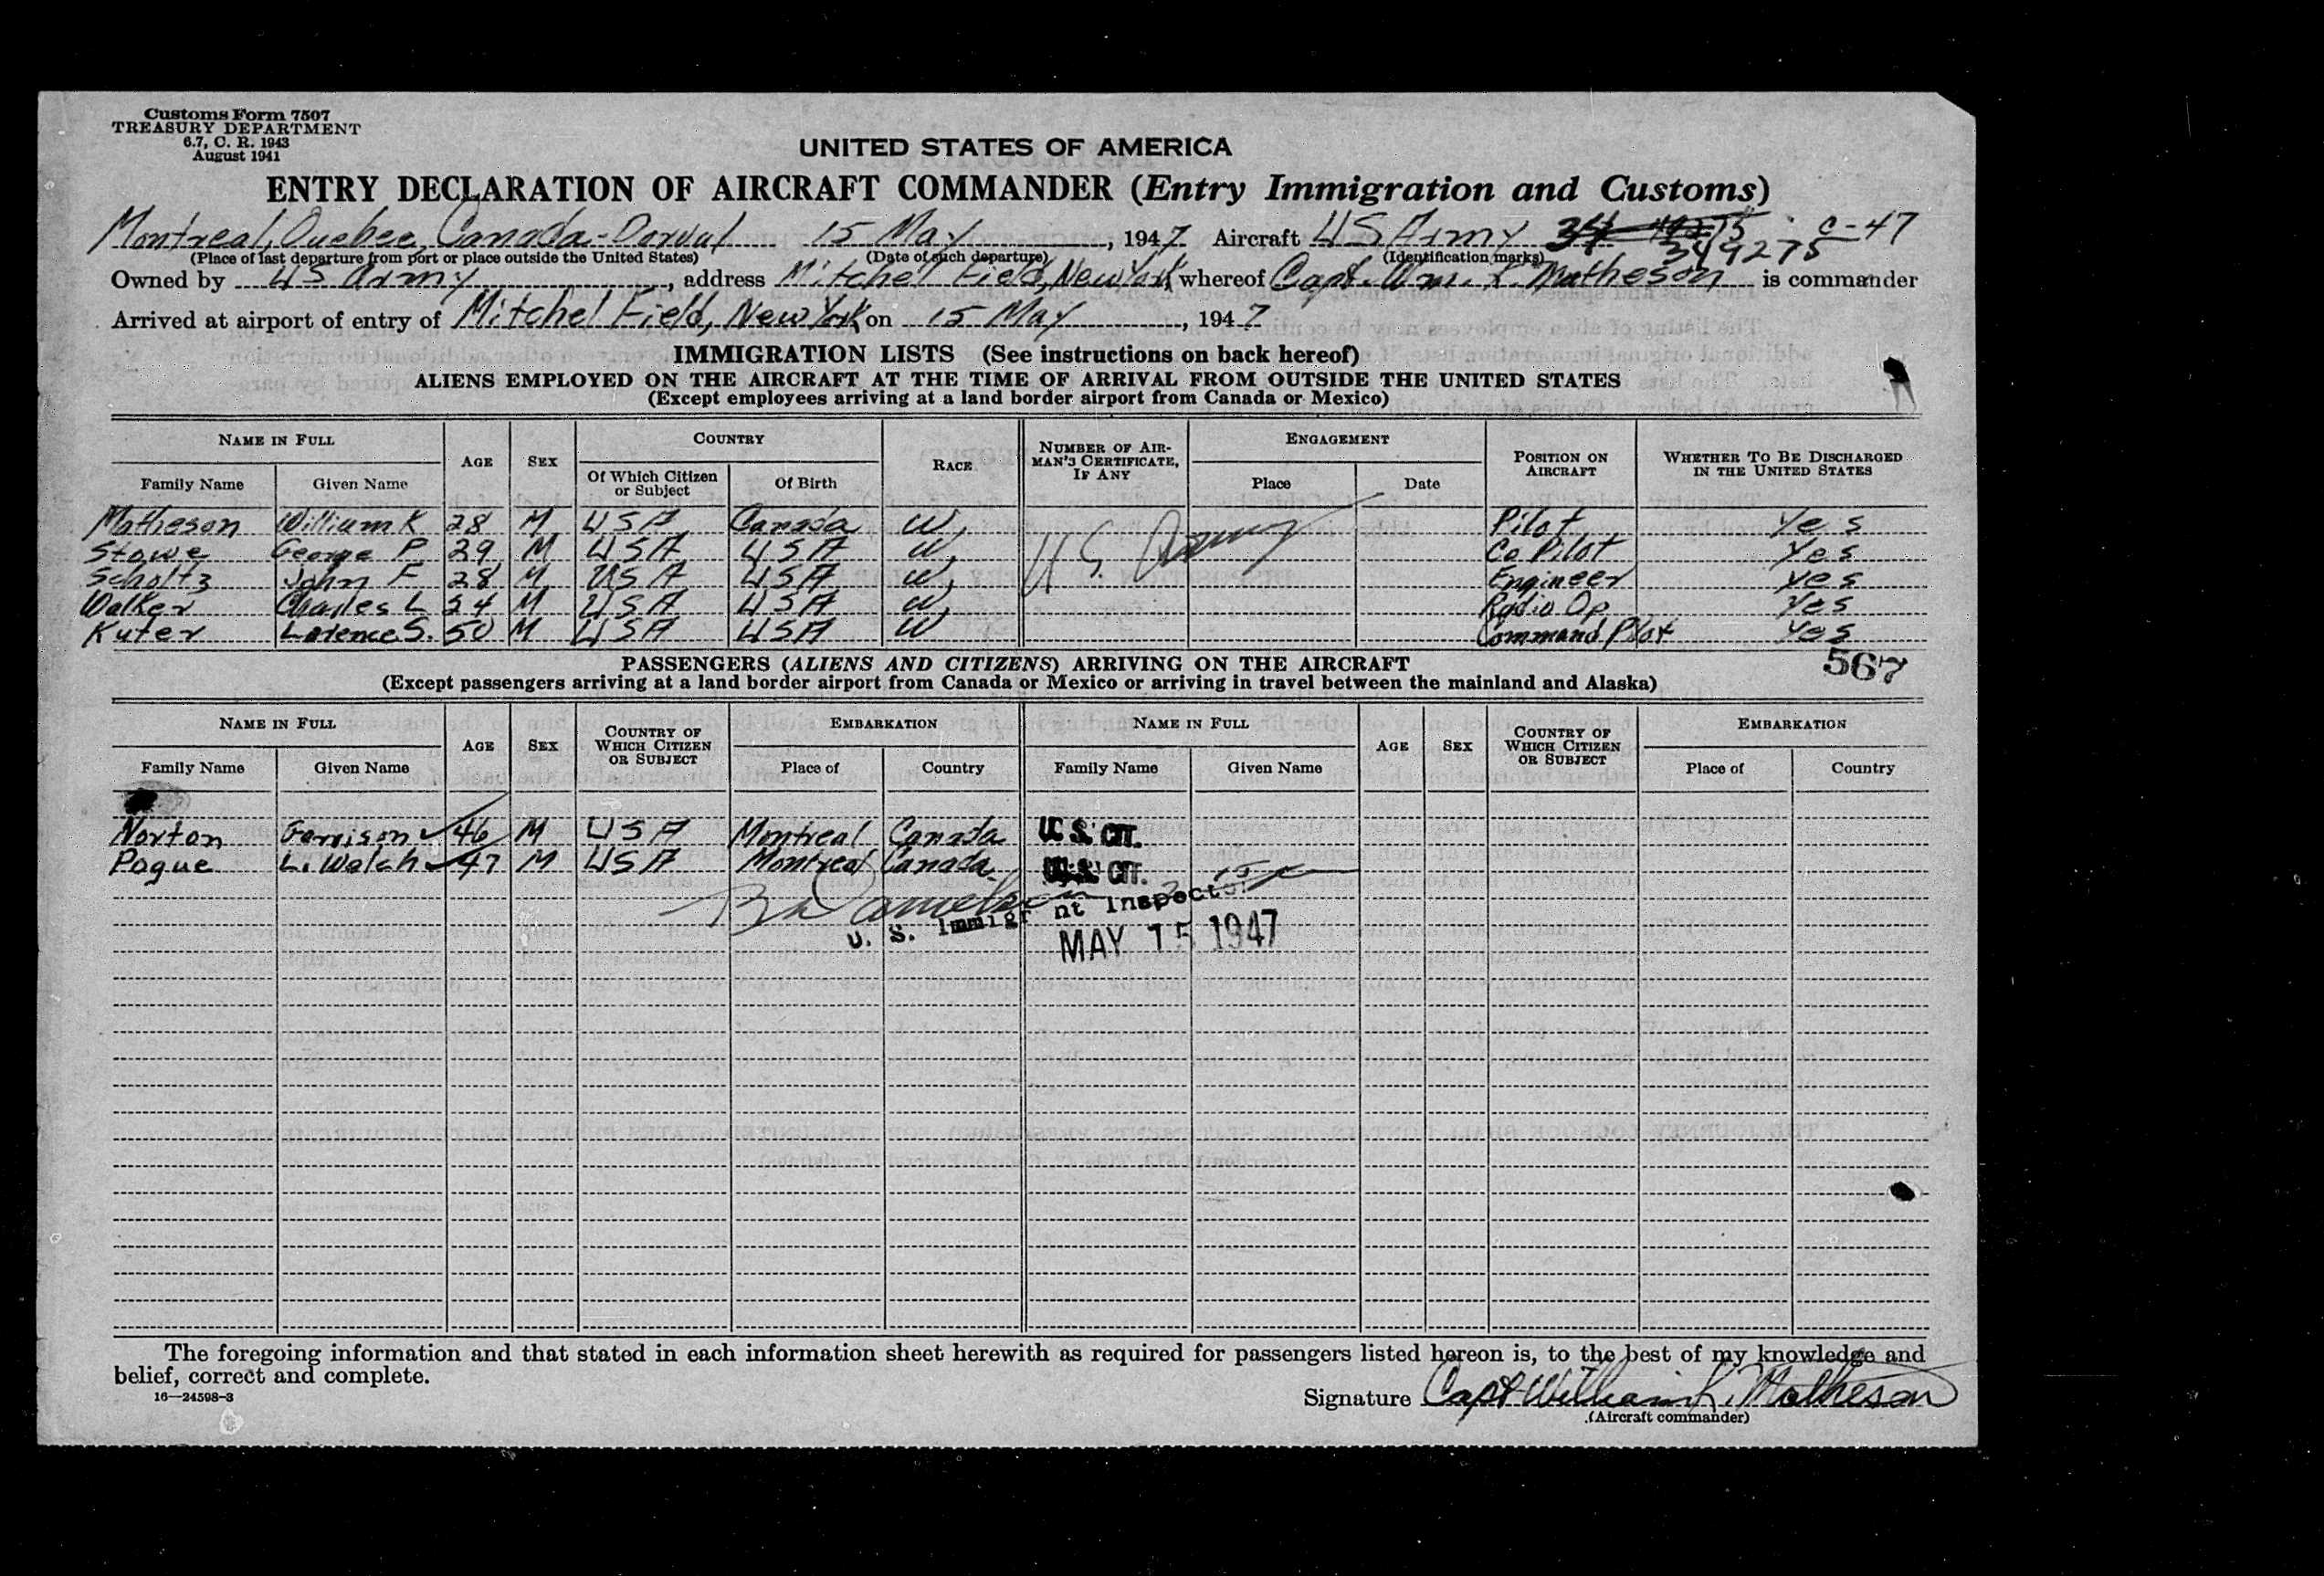 Customs Form 7507
TREASURY DEPARTMENT
6.7, C. R. 1943
August 1941
UNITED STATES OF AMERICA
ENTRY DECLARATION OF AIRCRAFT COMMANDER (Entry Immigration and Customs)
Montreal, Quebec, Canada-Dorval 15 May, 1947 Aircraft US Army C-47
349275
(Place of last departure from port or place outside the United States) (Date of such departure) (Identification marks)
Owned by US Army, address Mitchel Field, New York whereof Capt. Wm. K. Matheson is commander
Arrived at airport of entry of Mitchel Field, New York on 15 May, 1947
IMMIGRATION LISTS (See instructions on back hereof)
ALIENS EMPLOYED ON THE AIRCRAFT AT THE TIME OF ARRIVAL FROM OUTSIDE THE UNITED STATES
(Except employees arriving at a land border airport from Canada or Mexico)
NAME IN FULL AGE SEX COUNTRY RACE NUMBER OF AIRMAN'S CERTIFICATE, IF ANY ENGAGEMENT POSITION ON AIRCRAFT WHETHER TO BE DISCHARGED IN THE UNITED STATES
Family Name Given Name Of Which Citizen or Subject Of Birth Place Date
Matheson William K 28 M USA Canada W. Pilot Yes
Stowe George P 29 M USA USA W. U.S. Army Co Pilot Yes
Scholtz John F 28 M USA USA W. Engineer Yes
Walker Charles L 24 M USA USA W. Radio Op Yes
Kuter Larence S. 50 M USA USA W Command Pilot Yes
567
PASSENGERS (ALIENS AND CITIZENS) ARRIVING ON THE AIRCRAFT
(Except passengers arriving at a land border airport from Canada or Mexico or arriving in travel between the mainland and Alaska)
NAME IN FULL AGE SEX COUNTRY OF WHICH CITIZEN OR SUBJECT EMBARKATION NAME IN FULL AGE SEX COUNTRY OF WHICH CITIZEN OR SUBJECT EMBARKATION
Family Name Given Name Place of Country Family Name Given Name Place of Country
Norton Garrison 46 M USA Montreal Canada U. S. CIT.
Pogue L. Welch 47 M USA Montreal Canada U. S. CIT.
U. S. Immigrant Inspector
MAY 15 1947
The foregoing information and that stated in each information sheet herewith as required for passengers listed hereon is, to the best of my knowledge and
belief, correct and complete.
16—24598-3
Signature Capt William K. Matheson
(Aircraft commander)